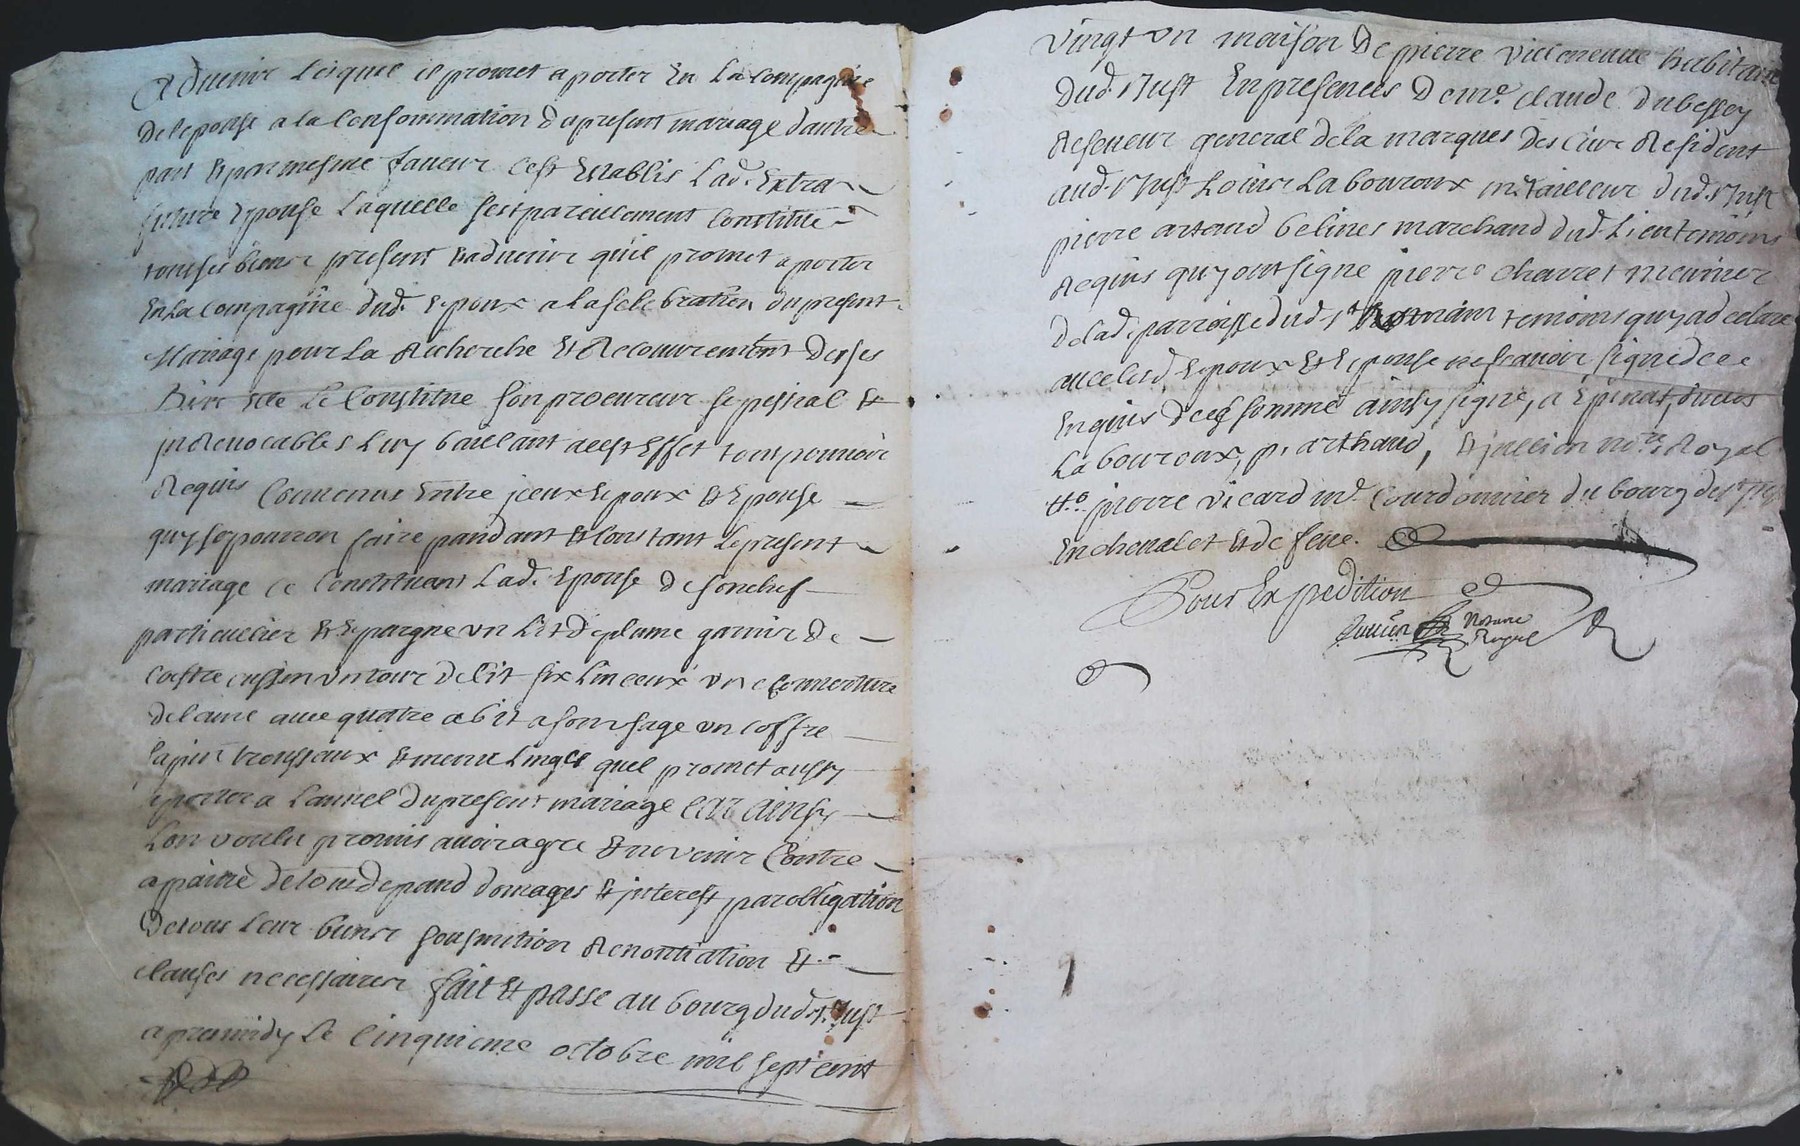 Advenir lesquel il promet a porter En La Compagnie
de lepouse a la Consommation du present mariage dautre
part & par mesme faveur C'est Establis Lad. Extra
future Epouse Laquelle sest pareillement Constitué
tous ses biens present & advenir quil promet a porter
En La Compagnie dud. Epoux a la selebration du present
Mariage pour La Recherche Et Recouvrement de ses
Le Constitue son procureur sepessial Et
jrrevocables Luy baillant a cest Effet tout pouvoir
Requis Convenus Entre jceux Epoux & Epouse
quy se pourron faire pandant & Constant Le present
mariage ce Constituant Lad. Epouse de son chef
particulier & Epargne un Lit de plume garnir de
un tour de lit six Linceux une Couverture
de laine avec quatre abit a son usage un Coffre
sapin trousseaux & menu Linges quel promet aussy
aporter a Lannel du present mariage Car Ainsy
Lon voulu promis avoir agre & ne venir Contre
a paine de tous depand domages & jnterest par obligation
de tous Leur biens soumition Renontiation &
clauses necessaires fait & passe au bourg dud. St Just
apremidy Le Cinquieme octobre mil sept cent
vingt un maison de pierre villeneuve habitant
dud. St Just En presences de me. Claude dubessey
Reseveur general de la marques des Cuirs Resident
aud. St Just Louis Labouroux me tailleur dud. St Just
pierre artaud belines marchand dud. Lieu temoins
Requis quy ont signe pierre Charret meunier
de lad. parroisse dud. St Romain temoins quy a declare
avec lesd. Epoux & Epouse ne scavoir signe de ce
Enquis & somme ainsy signe, a Epinat,
Labouroux, p. arthaud, & jullien note Royal
pierre vicard md. Courdonnier du bourg de St Just
En chevalet & de feue.
Pour Expedition
Jullien Notaire
Royal